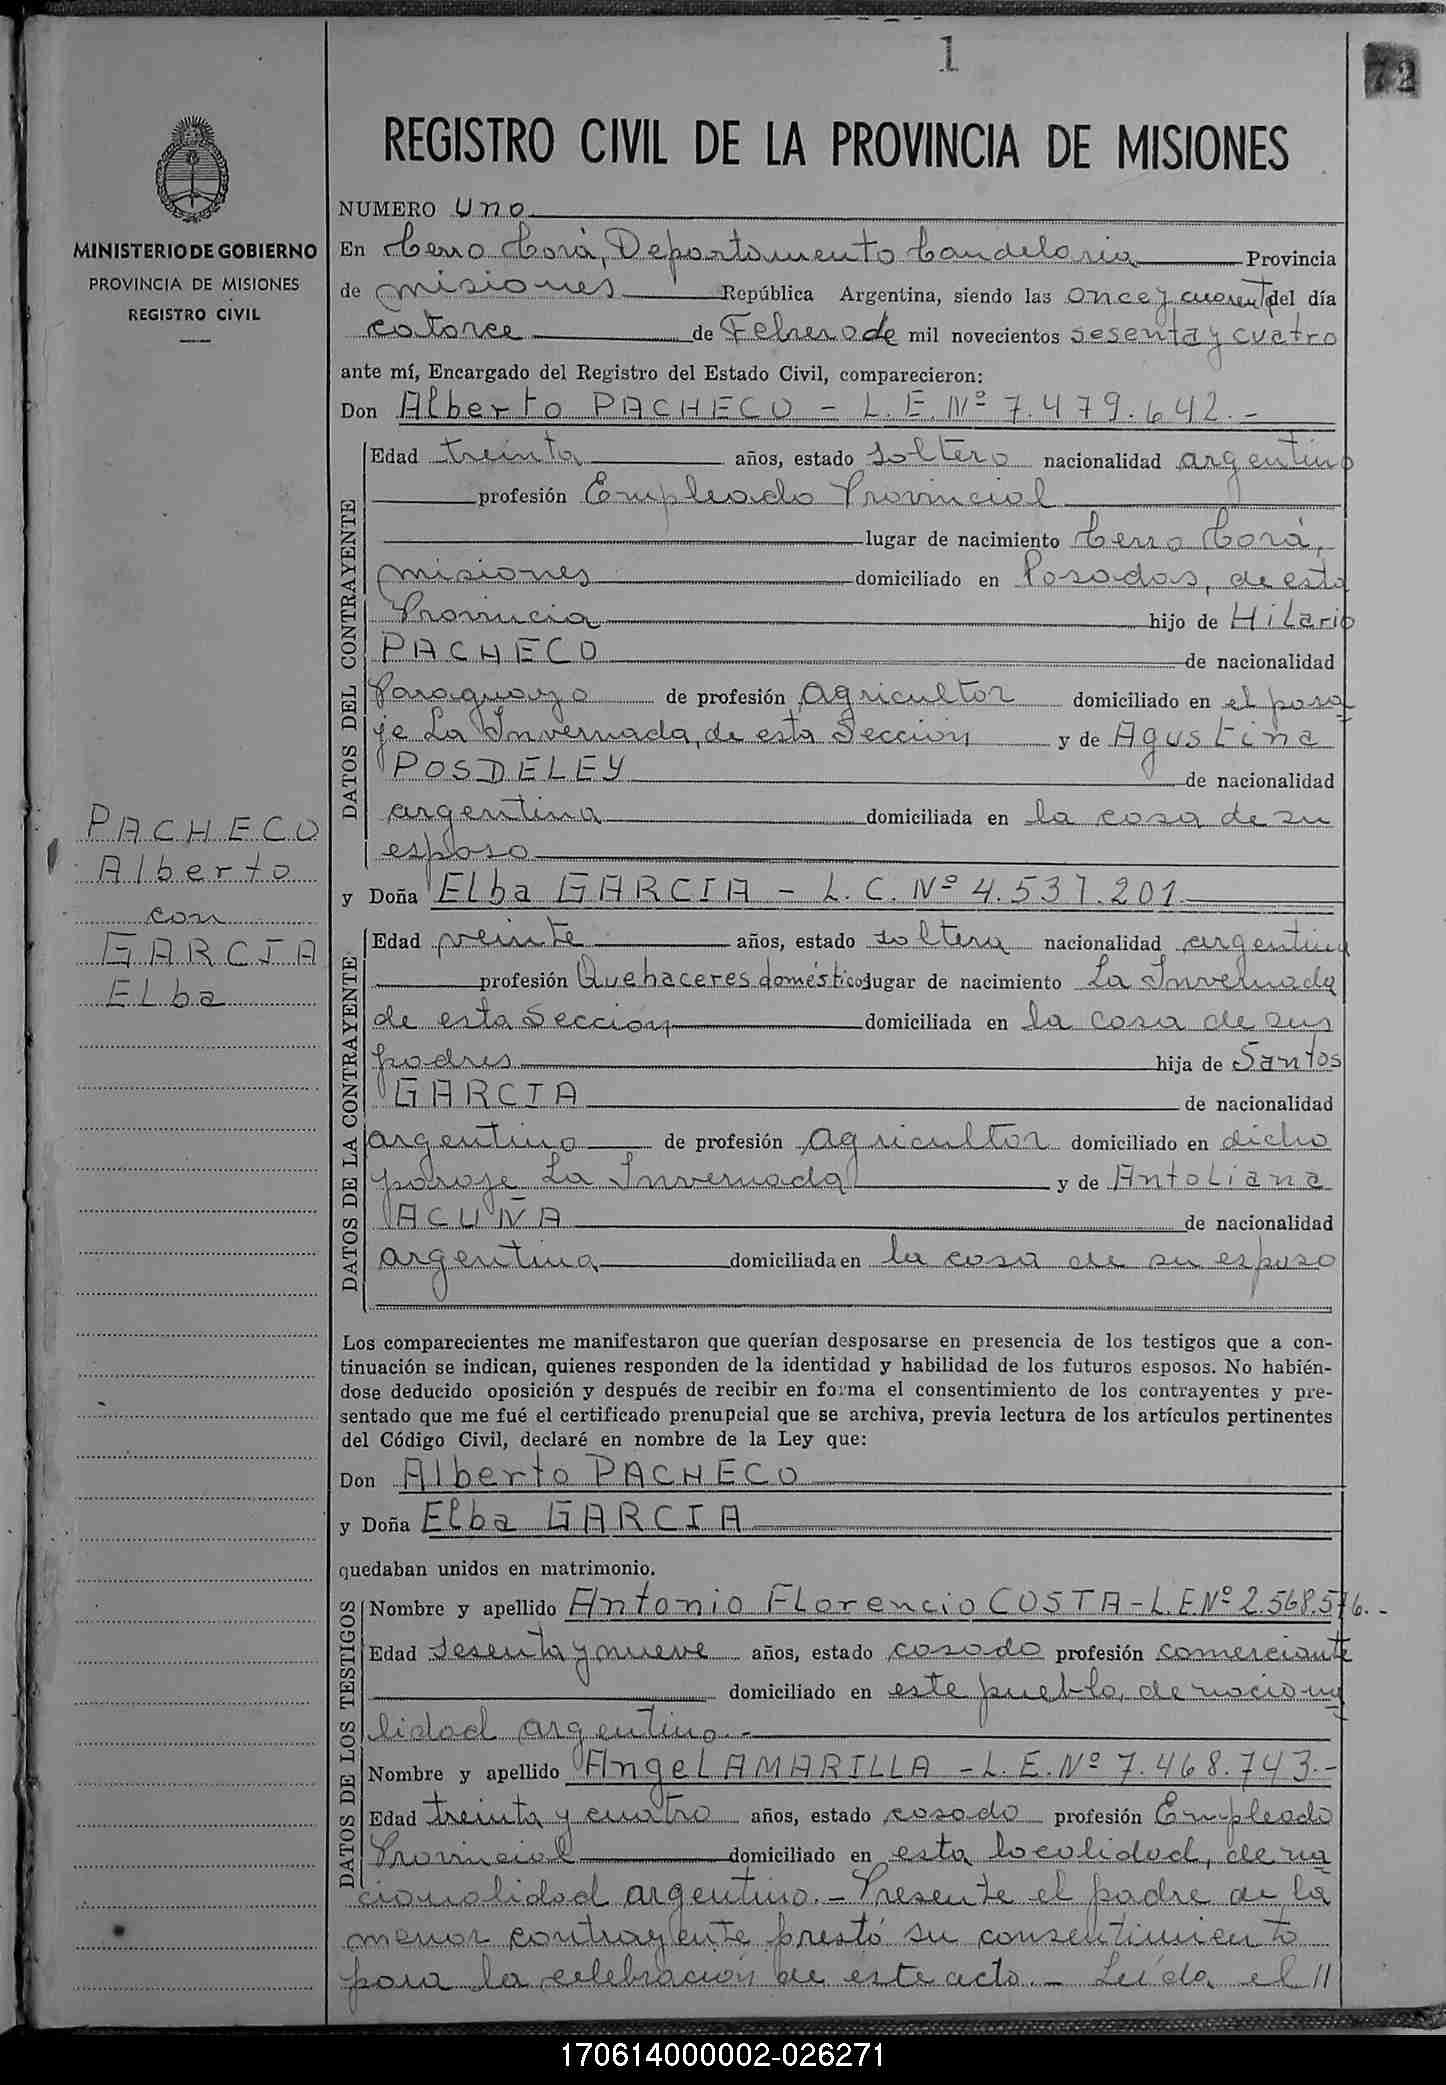 1
72
REGISTRO CIVIL DE LA PROVINCIA DE MISIONES
MINISTERIO DE GOBIERNO
PROVINCIA DE MISIONES
REGISTRO CIVIL
NUMERO Uno
En Cerro Corá, Departamento Candelaria Provincia
de Misiones República Argentina, siendo las once y cuarenta del día
catorce de Febrero de mil novecientos sesenta y cuatro
ante mí, Encargado del Registro del Estado Civil, comparecieron:
Don Alberto PACHECO - L.E. Nº 7.479.642.-
DATOS DEL CONTRAYENTE
Edad treinta años, estado soltero nacionalidad argentino
profesión Empleado Provincial
lugar de nacimiento Cerro Corá,
Misiones domiciliado en Posadas, de esta
Provincia hijo de Hilario
PACHECO de nacionalidad
Paraguaya de profesión Agricultor domiciliado en el para
je La Invernada, de esta Sección y de Agustina
POSDELEY de nacionalidad
argentina domiciliada en la casa de su
esposo
PACHECO
Alberto
con
GARCIA
Elba
y Doña Elba GARCIA - L.C. Nº 4.537.201
DATOS DE LA CONTRAYENTE
Edad veinte años, estado soltera nacionalidad argentina
profesión Quehaceres domésticos lugar de nacimiento La Invernada
de esta Sección domiciliada en la casa de sus
padres hija de Santos
GARCIA de nacionalidad
argentino de profesión Agricultor domiciliado en dicho
paraje La Invernada y de Antoliana
ACUÑA de nacionalidad
argentina domiciliada en la casa de su esposo
Los comparecientes me manifestaron que querían desposarse en presencia de los testigos que a con-
tinuación se indican, quienes responden de la identidad y habilidad de los futuros esposos. No habién-
dose deducido oposición y después de recibir en forma el consentimiento de los contrayentes y pre-
sentado que me fué el certificado prenupcial que se archiva, previa lectura de los artículos pertinentes
del Código Civil, declaré en nombre de la Ley que:
Don Alberto PACHECO
y Doña Elba GARCIA
quedaban unidos en matrimonio.
DATOS DE LOS TESTIGOS
Nombre y apellido Antonio Florencio COSTA - L.E. Nº 2.568.576.-
Edad sesenta y nueve años, estado casado profesión comerciante
domiciliado en este pueblo, de naciona
lidad argentino.-
Nombre y apellido Angel AMARILLA - L.E. Nº 7.468.743.-
Edad treinta y cuatro años, estado casado profesión Empleado
Provincial domiciliado en esta localidad, de na
cionalidad argentino.- Presente el padre de la
menor contrayente prestó su consentimiento
para la celebración de este acto.- Leída el //
170614000002-026271